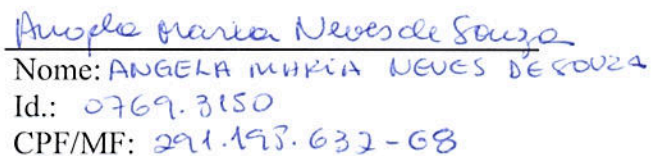 Angela Maria Neves de Souza
Nome: ANGELA MARIA NEVES DE SOUZA
Id.: 0769.3150
CPF/MF: 291.195.632-68